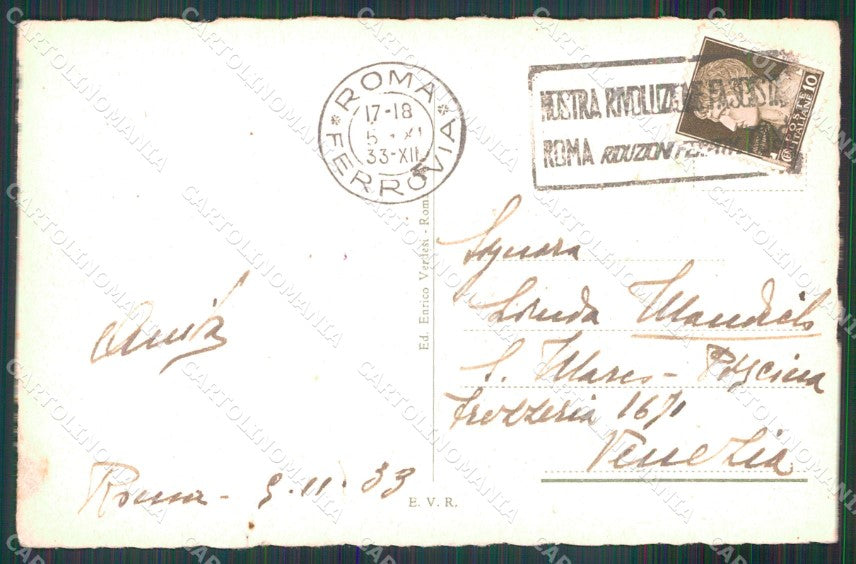 ROMA
FERROVIA
17-18
5 XI
33-XII
MOSTRA RIVOLUZIONE FASCISTA
ROMA RIDUZIONI
10
POSTE
ITALIANE
Ed. Enrico Verdesi - Roma
E. V. R.
Signora
Linda
S. Marco - Piscina
Frezzeria 1671
Venezia
Roma - 5. 11. 33
CARTOLINOMANIA